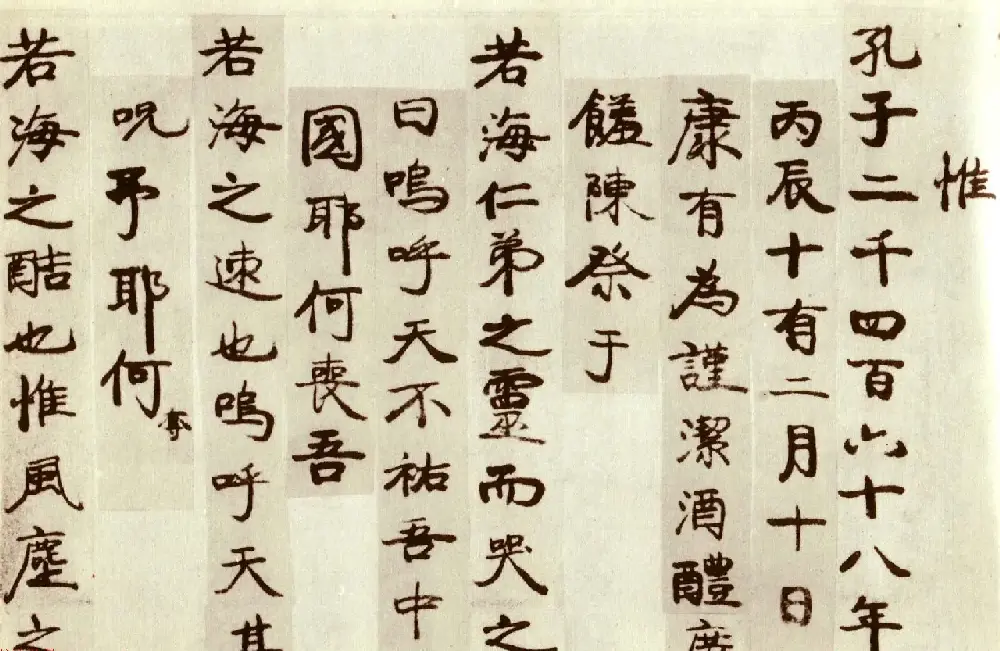 惟
孔子二千四百六十八年
丙辰十有二月十日
康有為謹潔酒醴庶
饈陳祭于
若海仁弟之靈而哭之
曰嗚呼天不祐吾中
國耶何喪吾
若海之速也嗚呼天其
呪予耶何奪
若海之酷也惟風塵之